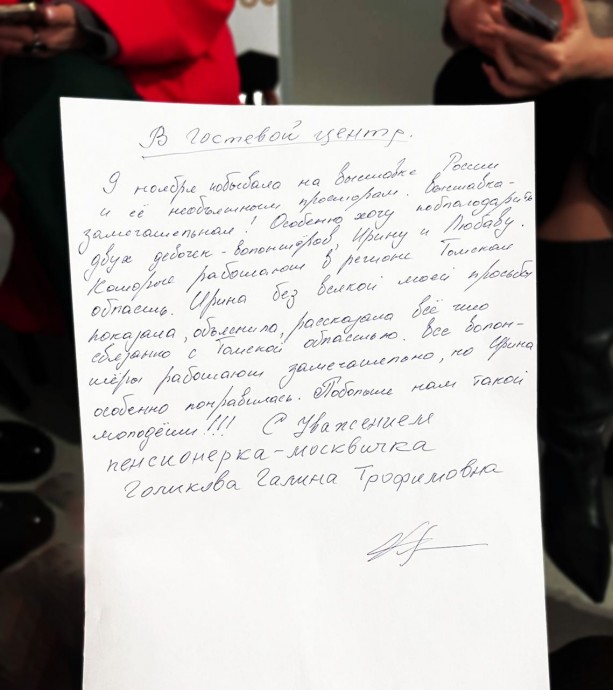 В гостевой центр.
9 ноября побывала на выставке России
и её необъятным просторам. Выставка-
замечательная! Особенно хочу поблагодарить
двух девочек-волонтёров, Ирину и Любаву.
Которые работают в регионе Томская
область. Ирина без всякой моей просьбы
показала, объяснила, рассказала всё что
связанно с Томской областью. Все волон-
тёры работают замечательно, но Ирина
особенно понравилась. Побольше нам такой
молодёжи!!! С Уважением
пенсионерка-москвичка
Голикова Галина Трофимовна